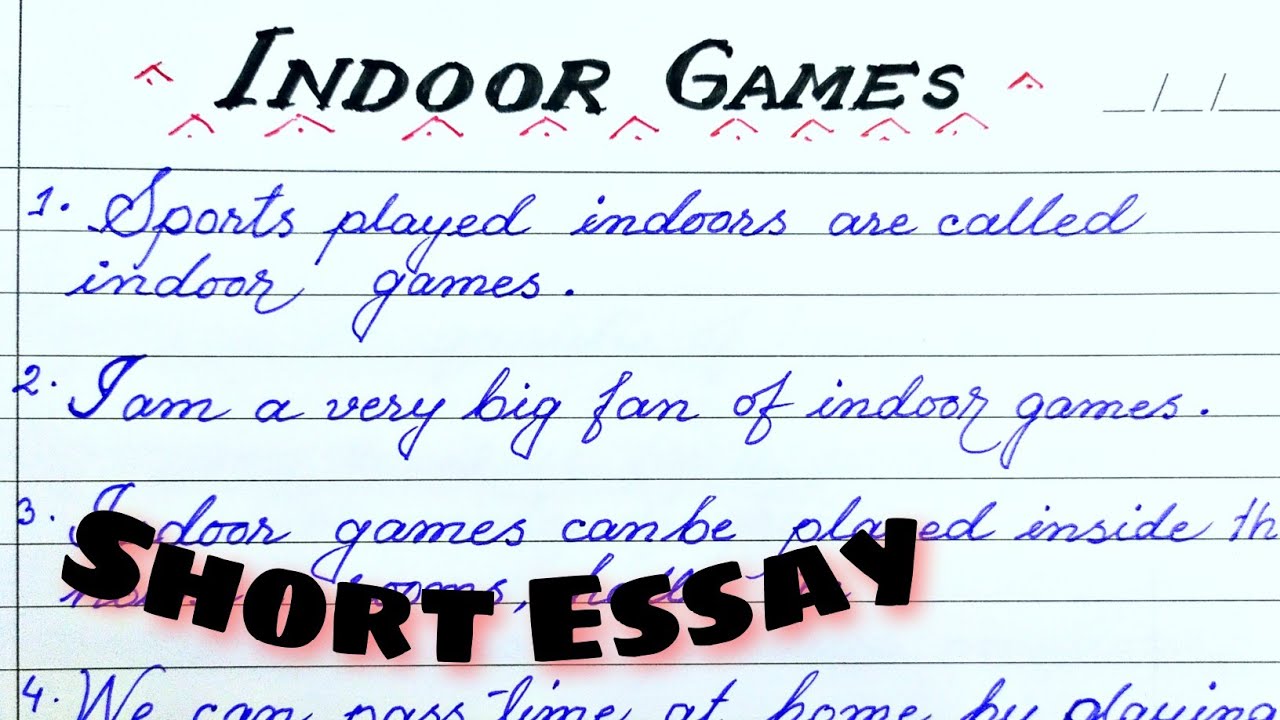 INDOOR GAMES
__/__/__
1. Sports played indoors are called
indoor games.
2. I am a very big fan of indoor games.
3. Indoor games canbe played inside th
rooms,
SHORT ESSAY
4. We can pass time at home by playing